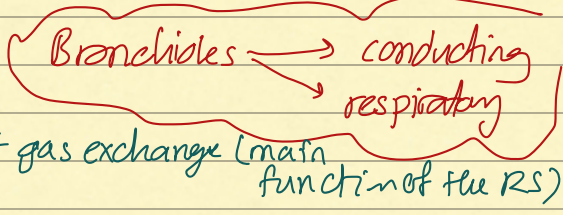 Bronchioles → conducting
→ respiratory
- gas exchange (main
function of the RS)